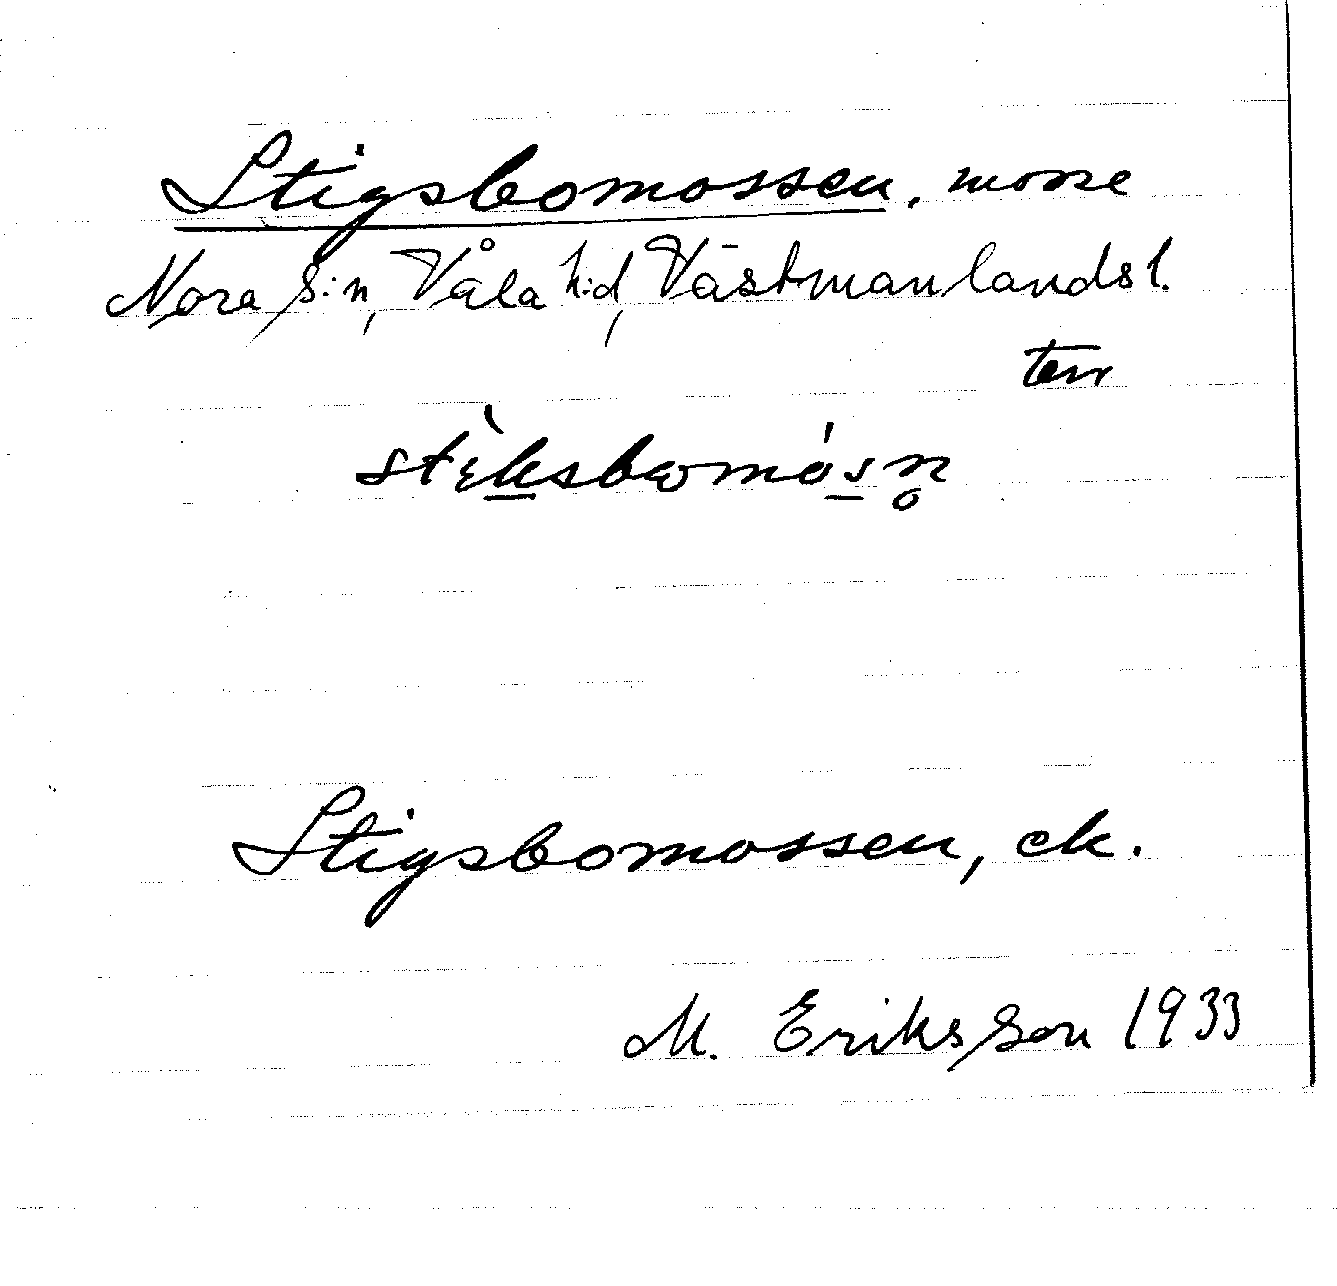 Stigsbomossen, mosse
Nora s:n, Våla h:d, Västmanlands l.
terr
stɛ̀k̲sbωmós̲n̥
Stigsbomossen, ek.
M. Eriksson 1933